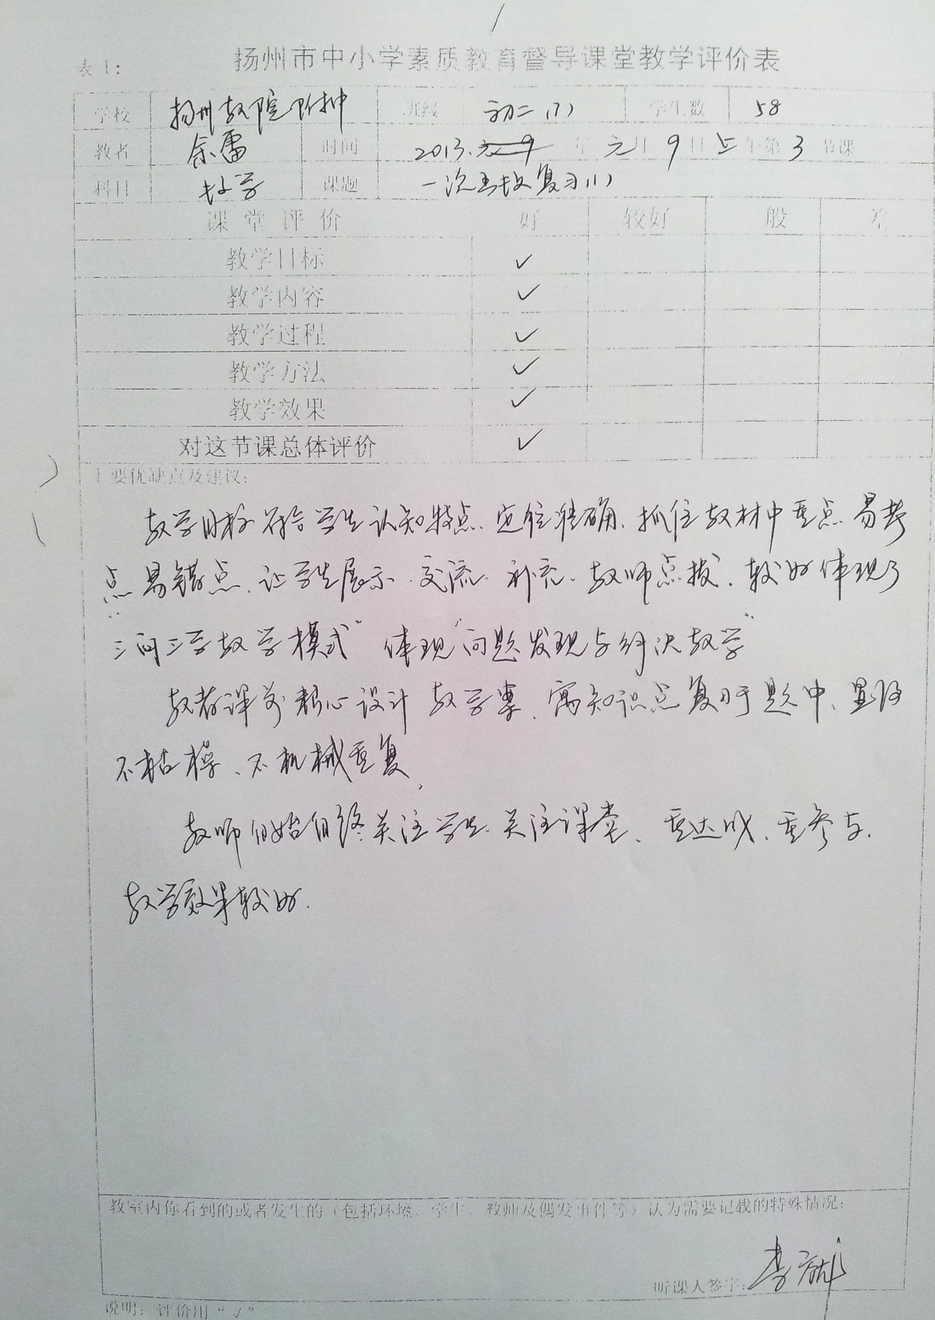 表1:
扬州市中小学素质教育督导课堂教学评价表
学校 扬州教院附中 班级 初二(1) 学生数 58
教者 余雷 时间 2013. 年 元月 9日 上午第 3 节课
科目 数学 课题 一次函数复习(1)
课堂评价 好 较好 一般 差
教学目标 ✓
教学内容 ✓
教学过程 ✓
教学方法 ✓
教学效果 ✓
对这节课总体评价 ✓
主要优缺点及建议:
教学目标符合学生认知特点、定位准确、抓住教材中重点、易考
点、易错点、让学生展示、交流、补充、教师点拨、较好体现了
"三问三学教学模式" 体现"问题发现与解决教学"
教者课前精心设计教学案、寓知识点复习于题中、显得
不枯燥、不机械重复,
教师自始自终关注学生、关注课堂、重达成、重参与.
教学效果较好.
教室内你看到的或者发生的(包括环境、学生、教师及偶发事件等)认为需要记载的特殊情况:
听课人签字: 李
说明: 评价用"√"